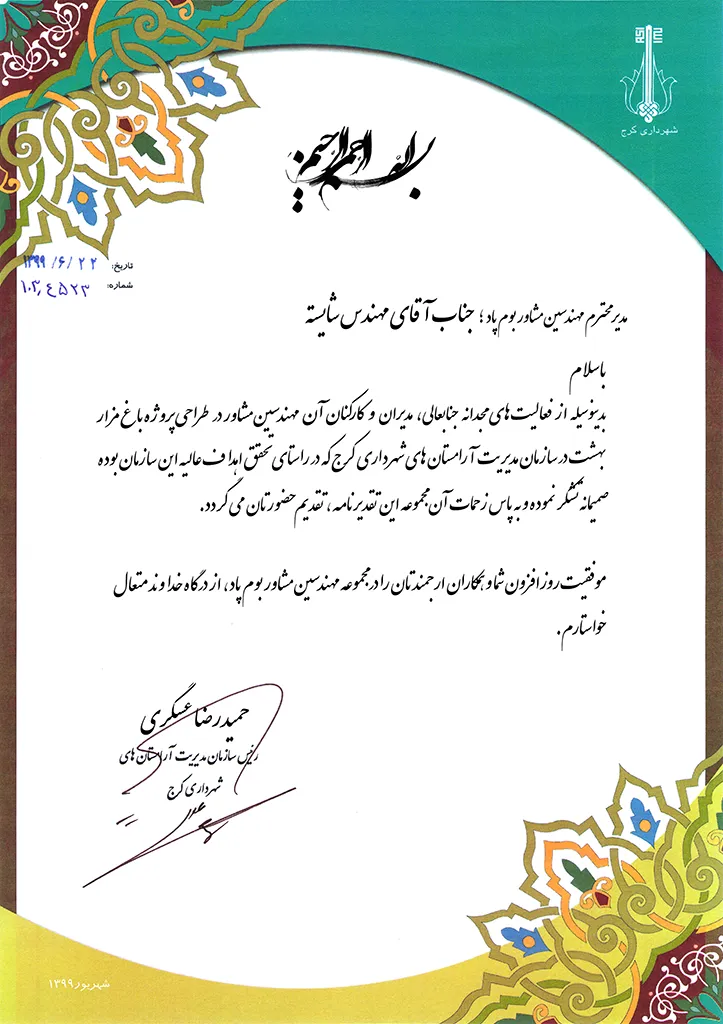 شهرداری کرج
بسم الله الرحمن الرحیم
تاریخ: ۱۳۹۹/۶/۲۲
شماره: ۱۰۳٫۴۵۲۳
مدیر محترم مهندسین مشاور بوم پاد؛ جناب آقای مهندس شایسته
باسلام
بدینوسیله از فعالیت های مجدانه جنابعالی، مدیران و کارکنان آن مهندسین مشاور در طراحی پروژه باغ مزار
بهشت در سازمان مدیریت آرامستان های شهرداری کرج که در راستای تحقق اهداف عالیه این سازمان بوده
صمیمانه تشکر نموده و به پاس زحمات آن مجموعه این تقدیرنامه، تقدیم حضورتان می گردد.
موفقیت روزافزون شما و همکاران ارجمندتان را در مجموعه مهندسین مشاور بوم پاد، از درگاه خداوند متعال
خواستارم.
حمیدرضا عسگری
رئیس سازمان مدیریت آرامستان های
شهرداری کرج
شهریور ۱۳۹۹